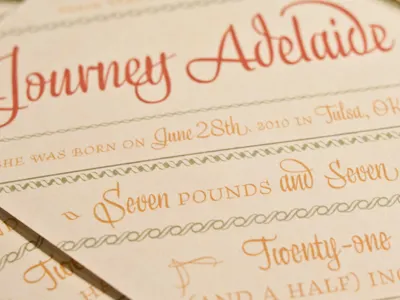 Journey Adelaide
SHE WAS BORN ON June 28th, 2010 IN Tulsa, OK
Seven POUNDS and Seven
Twenty-one
(AND A HALF) INC